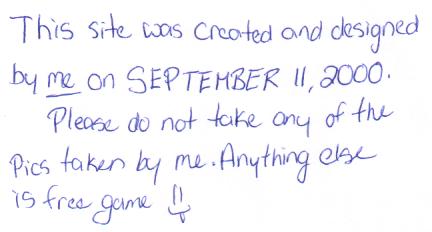 This site was created and designed
by me on SEPTEMBER 11, 2000.
Please do not take any of the
Pics taken by me. Anything else
is free game !!